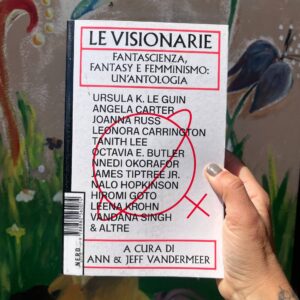 LE VISIONARIE
FANTASCIENZA,
FANTASY E FEMMINISMO:
UN'ANTOLOGIA
URSULA K. LE GUIN
ANGELA CARTER
JOANNA RUSS
LEONORA CARRINGTON
TANITH LEE
OCTAVIA E. BUTLER
NNEDI OKORAFOR
JAMES TIPTREE JR.
NALO HOPKINSON
HIROMI GOTO
LEENA KROHN
VANDANA SINGH
& ALTRE
A CURA DI
ANN & JEFF VANDERMEER
NERO